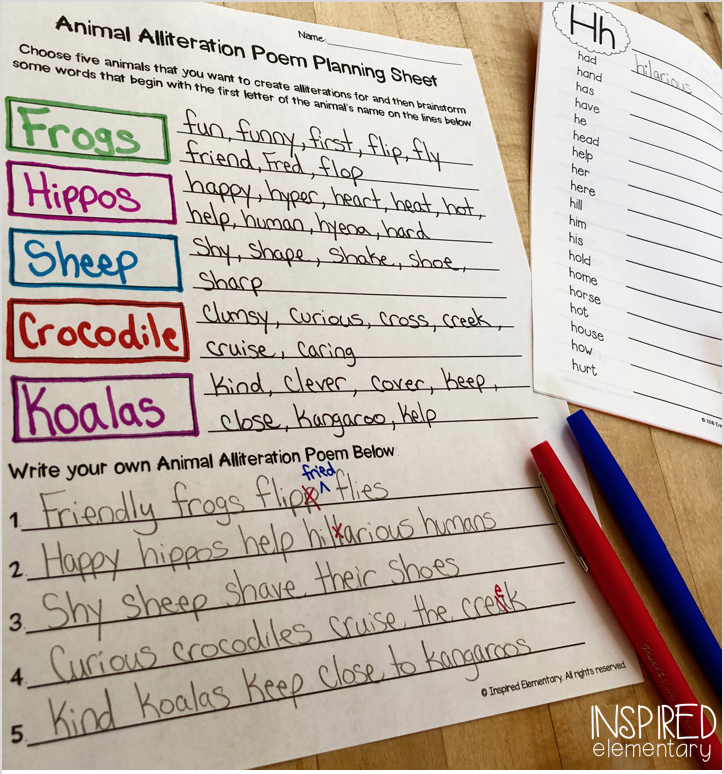 Name:
Animal Alliteration Poem Planning Sheet
Choose five animals that you want to create alliterations for and then brainstorm
some words that begin with the first letter of the animal's name on the lines below
Frogs
fun, funny, first, flip, fly
friend, Fred, flop
Hippos
happy, hyper, heart, heat, hot,
help, human, hyena, hard
Sheep
Shy, shape, shake, shoe,
sharp
Crocodile
clumsy, curious, cross, creek,
cruise, caring
Koalas
Kind, clever, cover, keep,
close, kangaroo, kelp
Write your own Animal Alliteration Poem Below
fried
1. Friendly frogs flip ^ flies
2. Happy hippos help hilarious humans
3. Shy sheep shave their shoes
4. Curious crocodiles cruise the creek
5. Kind koalas keep close to kangaroos
© Inspired Elementary. All rights reserved.
Hh
hilarious
had
hand
has
have
he
head
help
her
here
hill
him
his
hold
home
horse
hot
house
how
hurt
INSPIRED
elementary